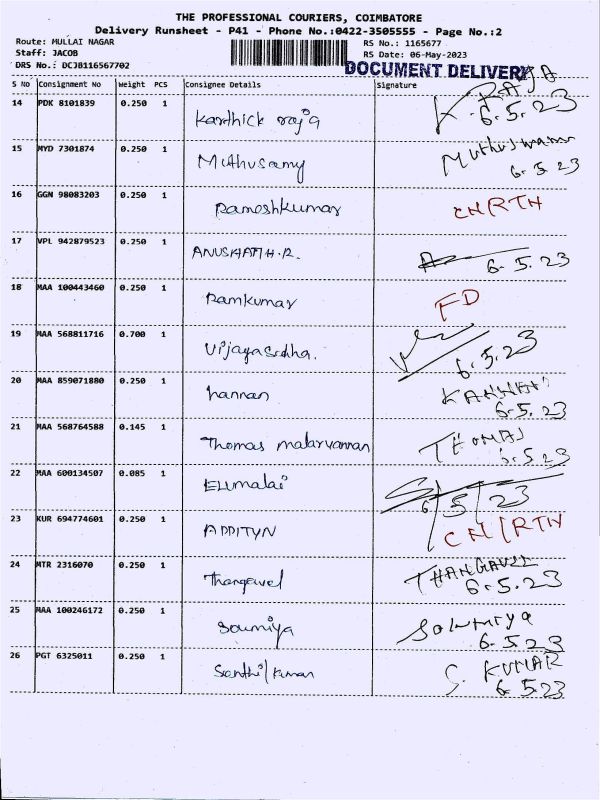 THE PROFESSIONAL COURIERS, COIMBATORE
Delivery Runsheet - P41 - Phone No.:0422-3505555 - Page No.:2
Route: MULLAI NAGAR RS No.: 1165677
Staff: JACOB RS Date: 06-May-2023
DRS No.: DCJB116567702 DOCUMENT DELIVERY
S No Consignment No Weight PCS Consignee Details Signature
14 PDK 8101839 0.250 1 Karthick raja K. RAJA 6.5.23
15 MYD 7301874 0.250 1 Muthusamy Muthuswami 6.5.23
16 GGN 98083203 0.250 1 Rameshkumar CN/RTN
17 VPL 942879523 0.250 1 6.5.23
18 MAA 100443460 0.250 1 Ramkumar FD
19 MAA 568811716 0.700 1 Vijayasudha. 6.5.23
20 MAA 859071880 0.250 1 hannan KANNAN 6.5.23
21 MAA 568764588 0.145 1 Thomas malarvannan THOMAS 6.5.23
22 MAA 600134507 0.085 1 Elumalai 6/5/23
23 KUR 694774601 0.250 1 ADDITYN CN/RTN
24 MTR 2316070 0.250 1 Thangavel THANGAVEL 6.5.23
25 MAA 100246172 0.250 1 Soumiya Sowmiya 6.5.23
26 PGT 6325011 0.250 1 Senthil kumar S. KUMAR 6.5.23